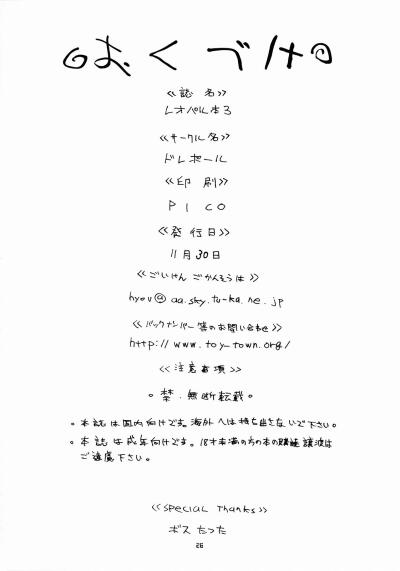 おくづけ
<<誌名>>
レオパル本3
<<サークル名>>
ドレポール
<<印刷>>
PICO
<<発行日>>
11月30日
<<ごいけん ごかんそうは>>
hyou@aa.sky.tu-ka.ne.jp
<<バックナンバー等のお問い合わせ>>
http://www.toy-town.org/
<<注意事項>>
。禁.無断転載。
。本誌は国内向けです。海外へは持ち出さないで下さい。
。本誌は成年向けです。18才未満の方の本の購読 譲渡は
ご遠慮下さい。
<<special Thanks>>
ボス たつた
26